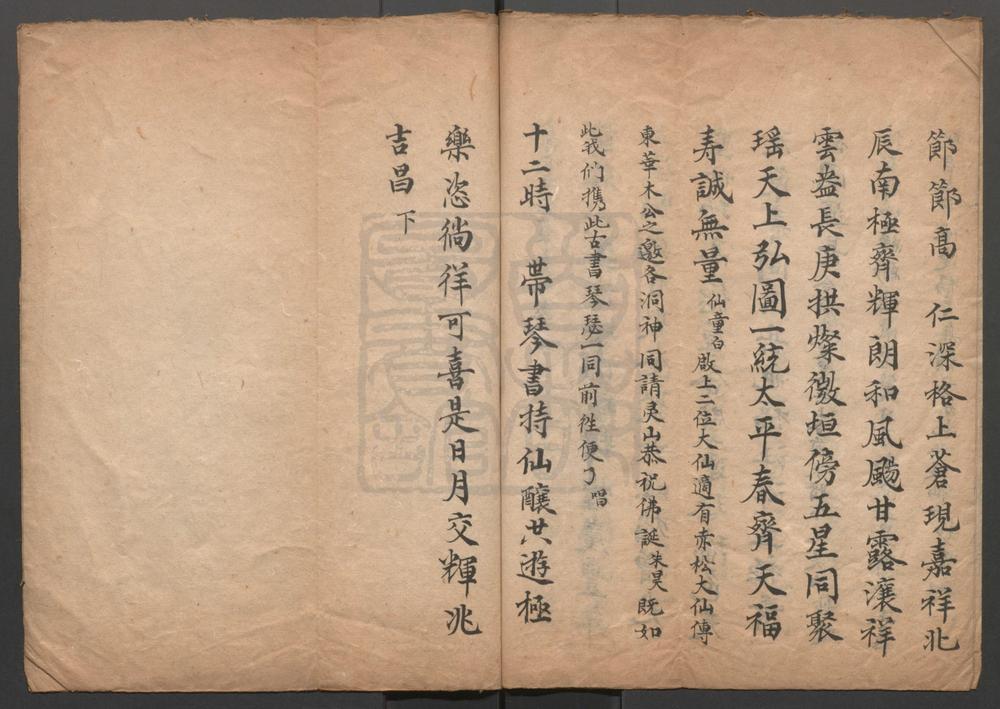 節節高 仁深格上蒼現嘉祥北
辰南極齊輝朗和風颺甘露瀼祥
雲盎長庚拱燦微垣傍五星同聚
瑶天上弘圖一統太平春齊天福
寿誠無量 仙童白 啟上二位大仙適有赤松大仙傳
東華木公之邀各洞神同請灵山恭祝佛誕 朱昊 既如
此我們携此古書琴瑟一同前徃便了 唱
十二時 帶琴書持仙釀共遊極
樂恣徜徉可喜是日月交輝兆
吉昌 下